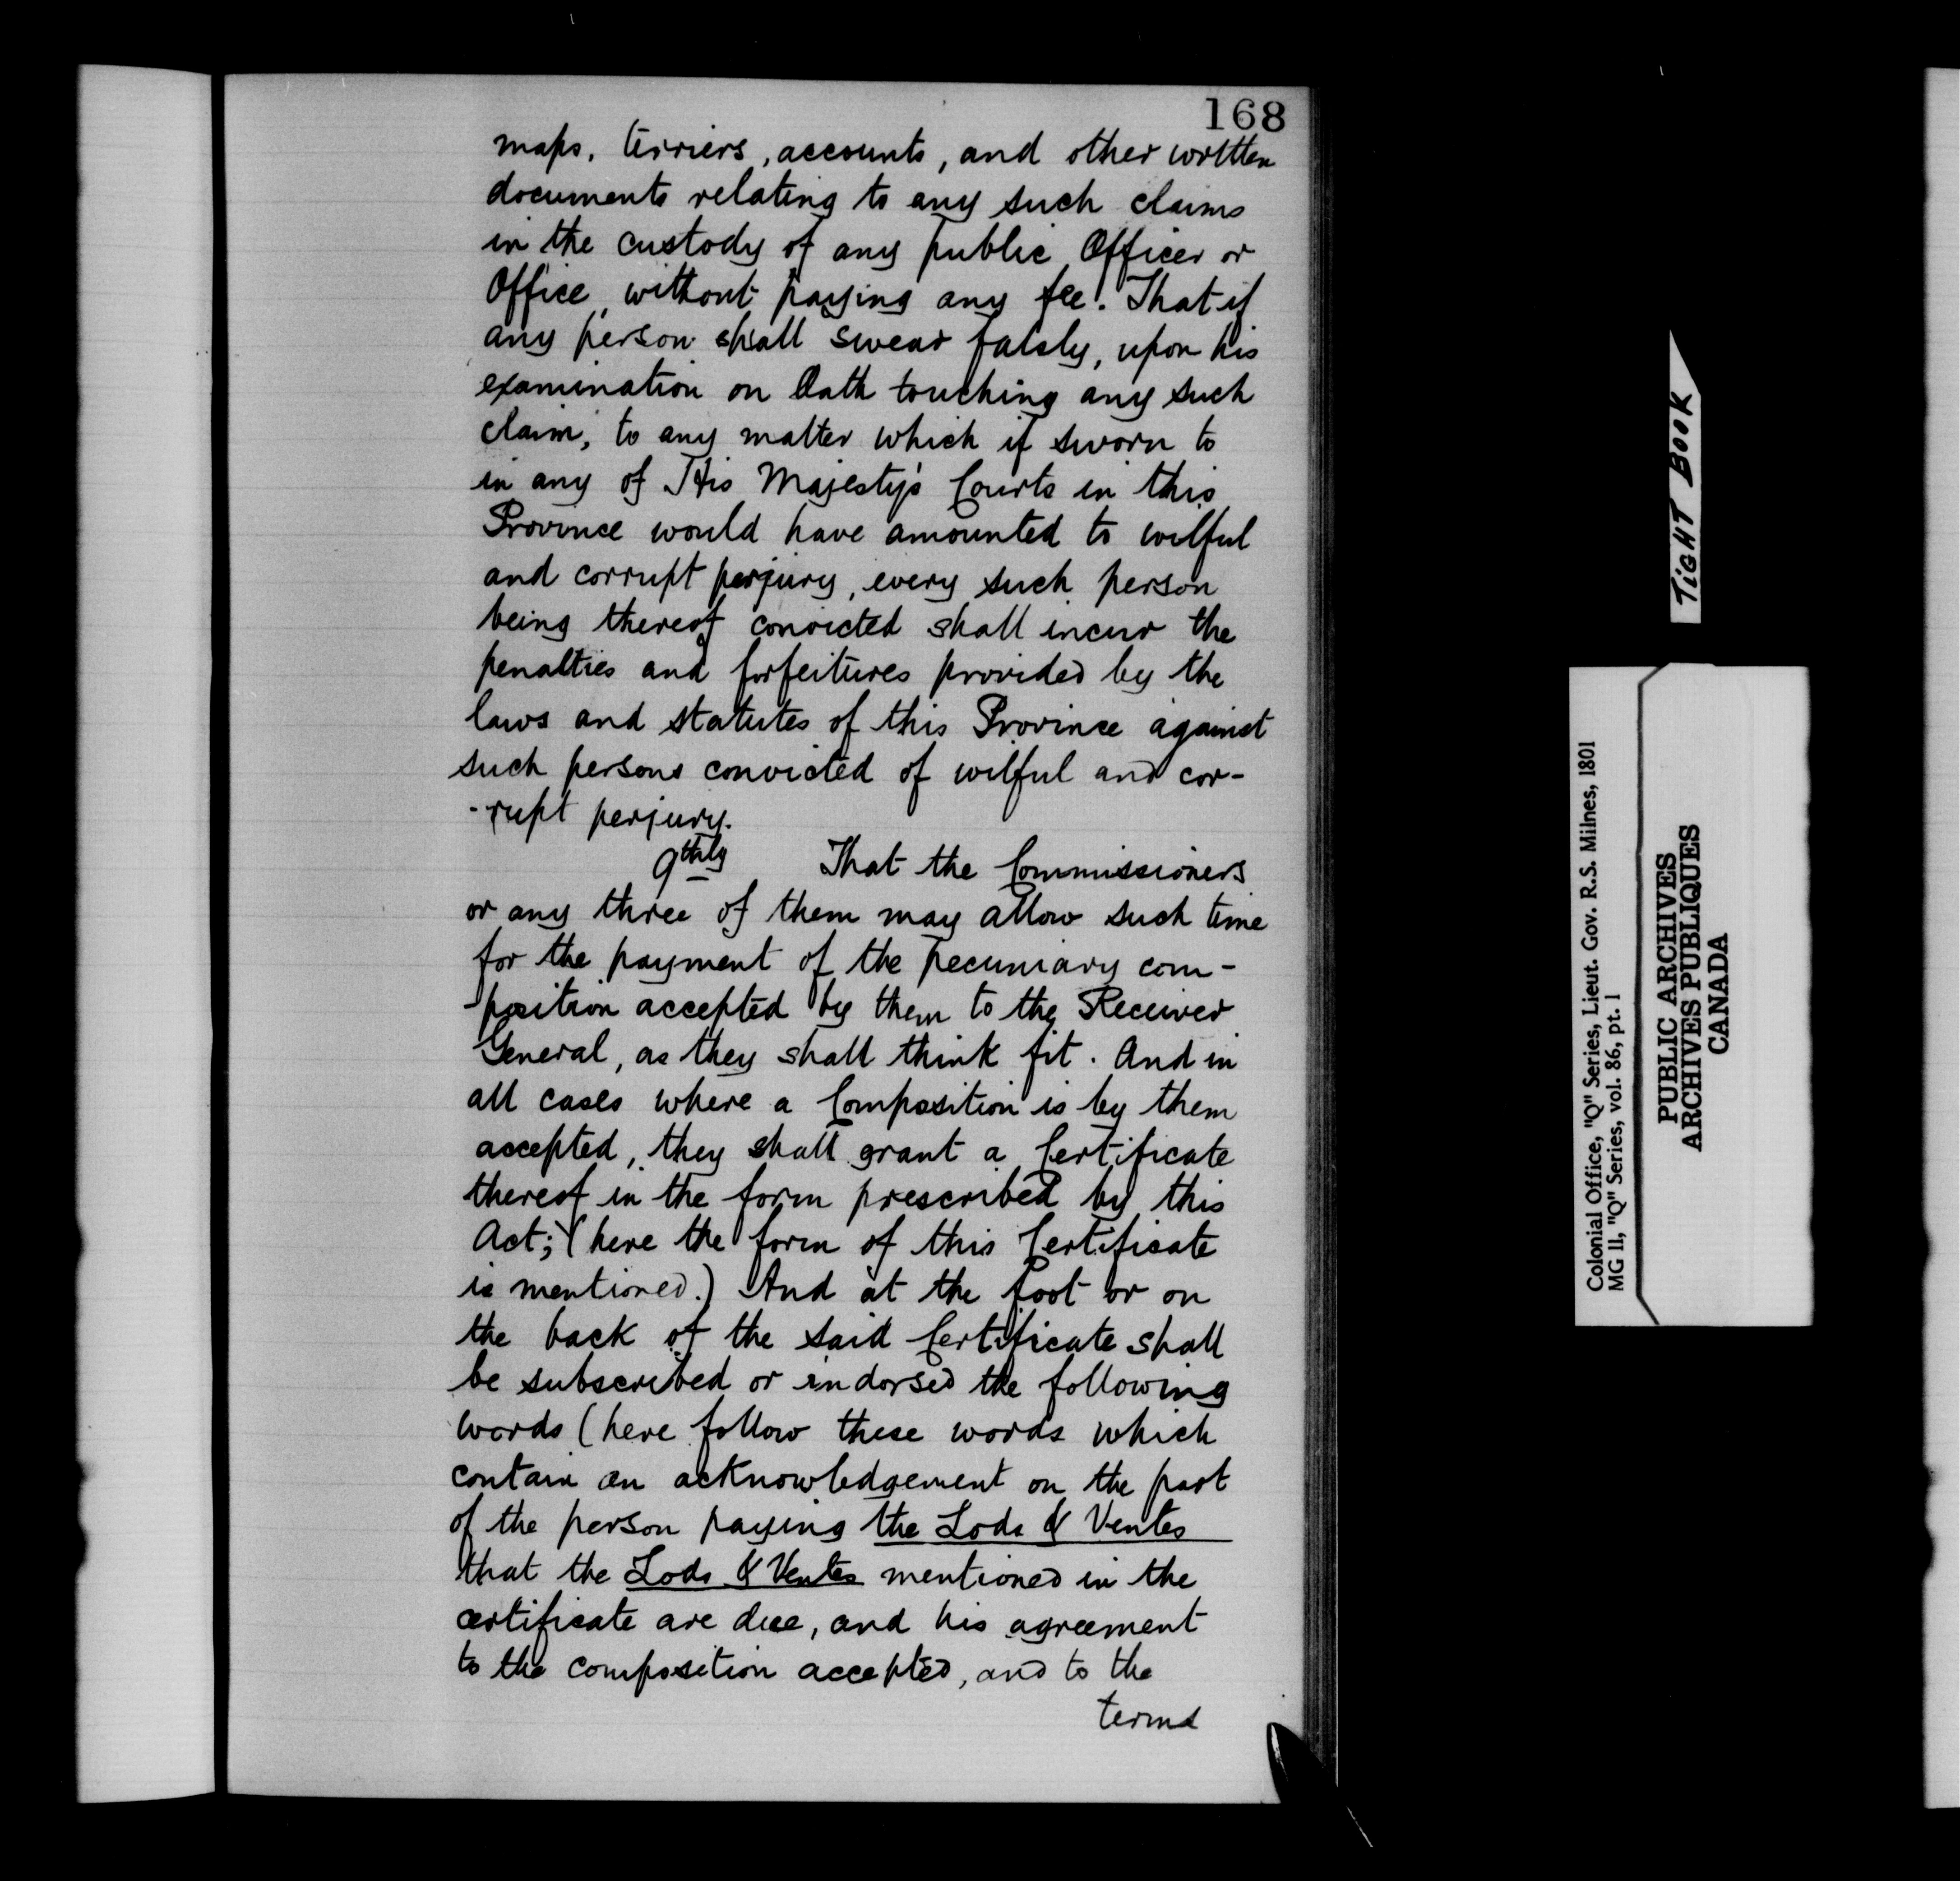 168
maps, terriers, accounts, and other written
documents relating to any such claims
in the custody of any public Officer or
Office, without paying any fee. That if
any person shall swear falsly, upon his
examination on Oath touching any such
claim, to any matter which if sworn to
in any of His Majesty's Courts in this
Province would have amounted to wilful
and corrupt perjury, every such person
being thereof convicted shall incur the
penalties and forfeitures provided by the
laws and statutes of this Province against
such persons convicted of wilful and cor-
-rupt perjury.
9thly That the Commissioners
or any three of them may allow such time
for the payment of the pecuniary com-
-position accepted by them to the Receiver
General, as they shall think fit. And in
all cases where a Composition is by them
accepted, they shall grant a Certificate
thereof in the form prescribed by this
Act; (here the form of this Certificate
is mentioned.) And at the foot or on
the back of the said Certificate shall
be subscribed or indorsed the following
words (here follow these words which
contain an acknowledgement on the part
of the person paying the Lods & Ventes
that the Lods & Ventes mentioned in the
certificate are due, and his agreement
to the composition accepted, and to the
terms
TIGHT BOOK
Colonial Office, "Q" Series, Lieut. Gov. R.S. Milnes, 1801
MG 11, "Q" Series, vol. 86, pt. 1
PUBLIC ARCHIVES
ARCHIVES PUBLIQUES
CANADA